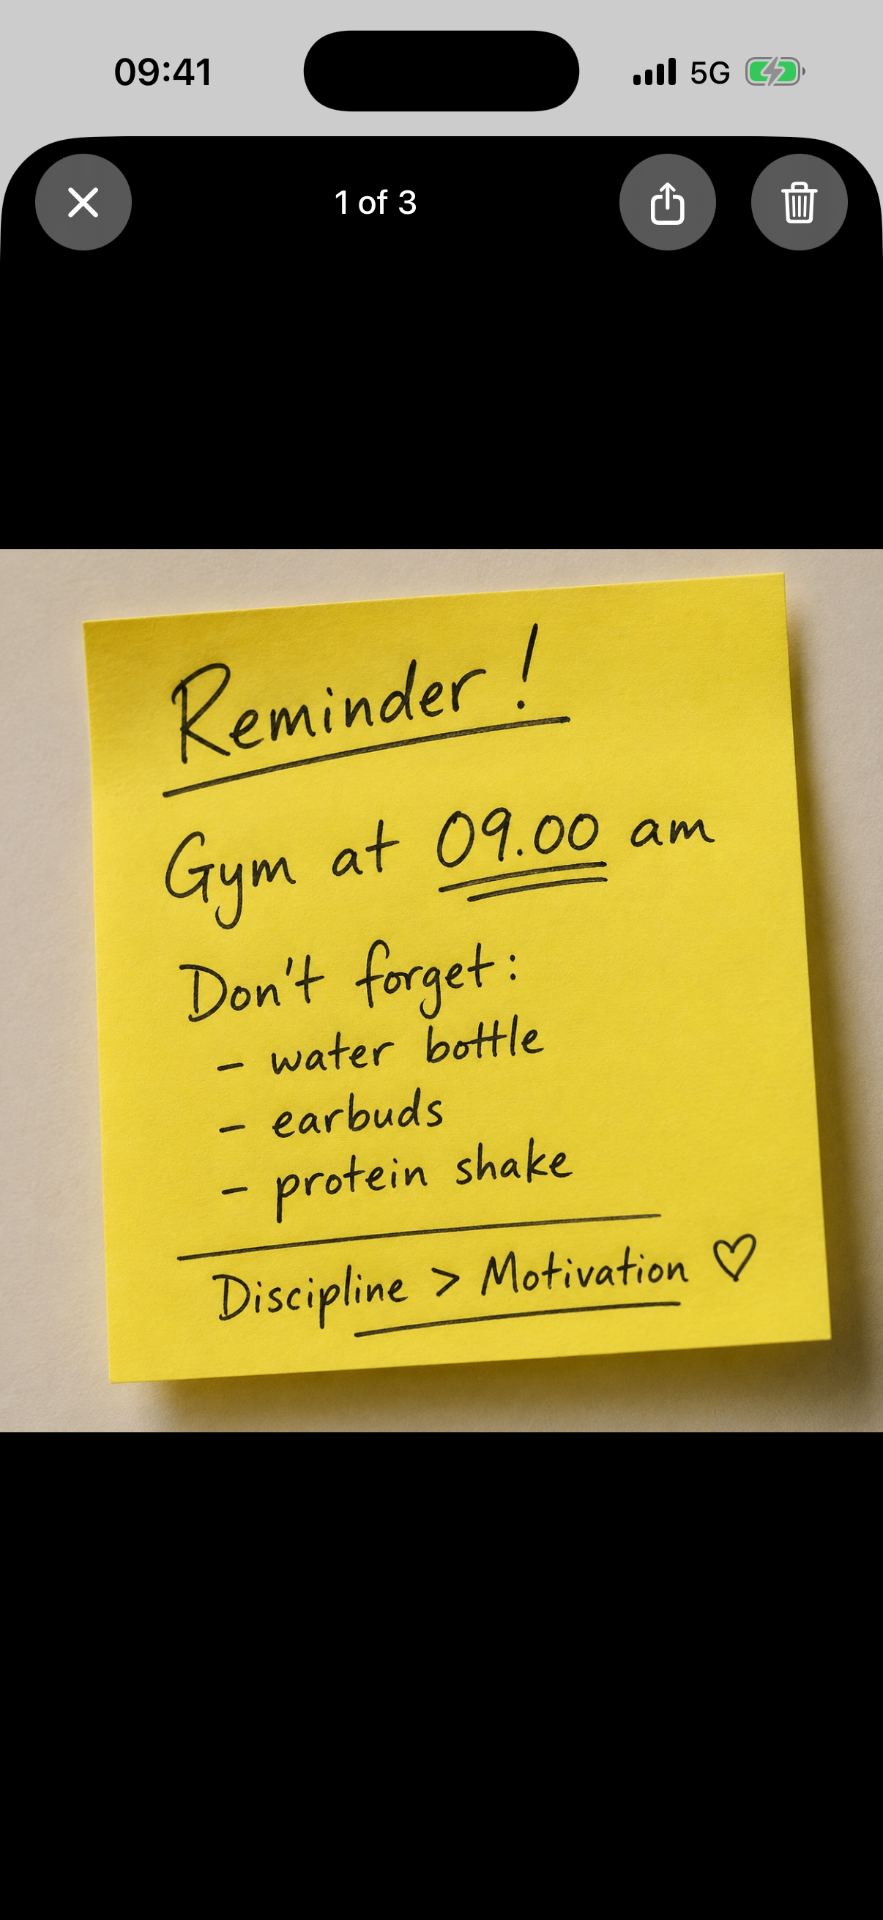 09:41
5G
1 of 3
Reminder !
Gym at 09.00 am
Don't forget:
- water bottle
- earbuds
- protein shake
Discipline > Motivation ♡